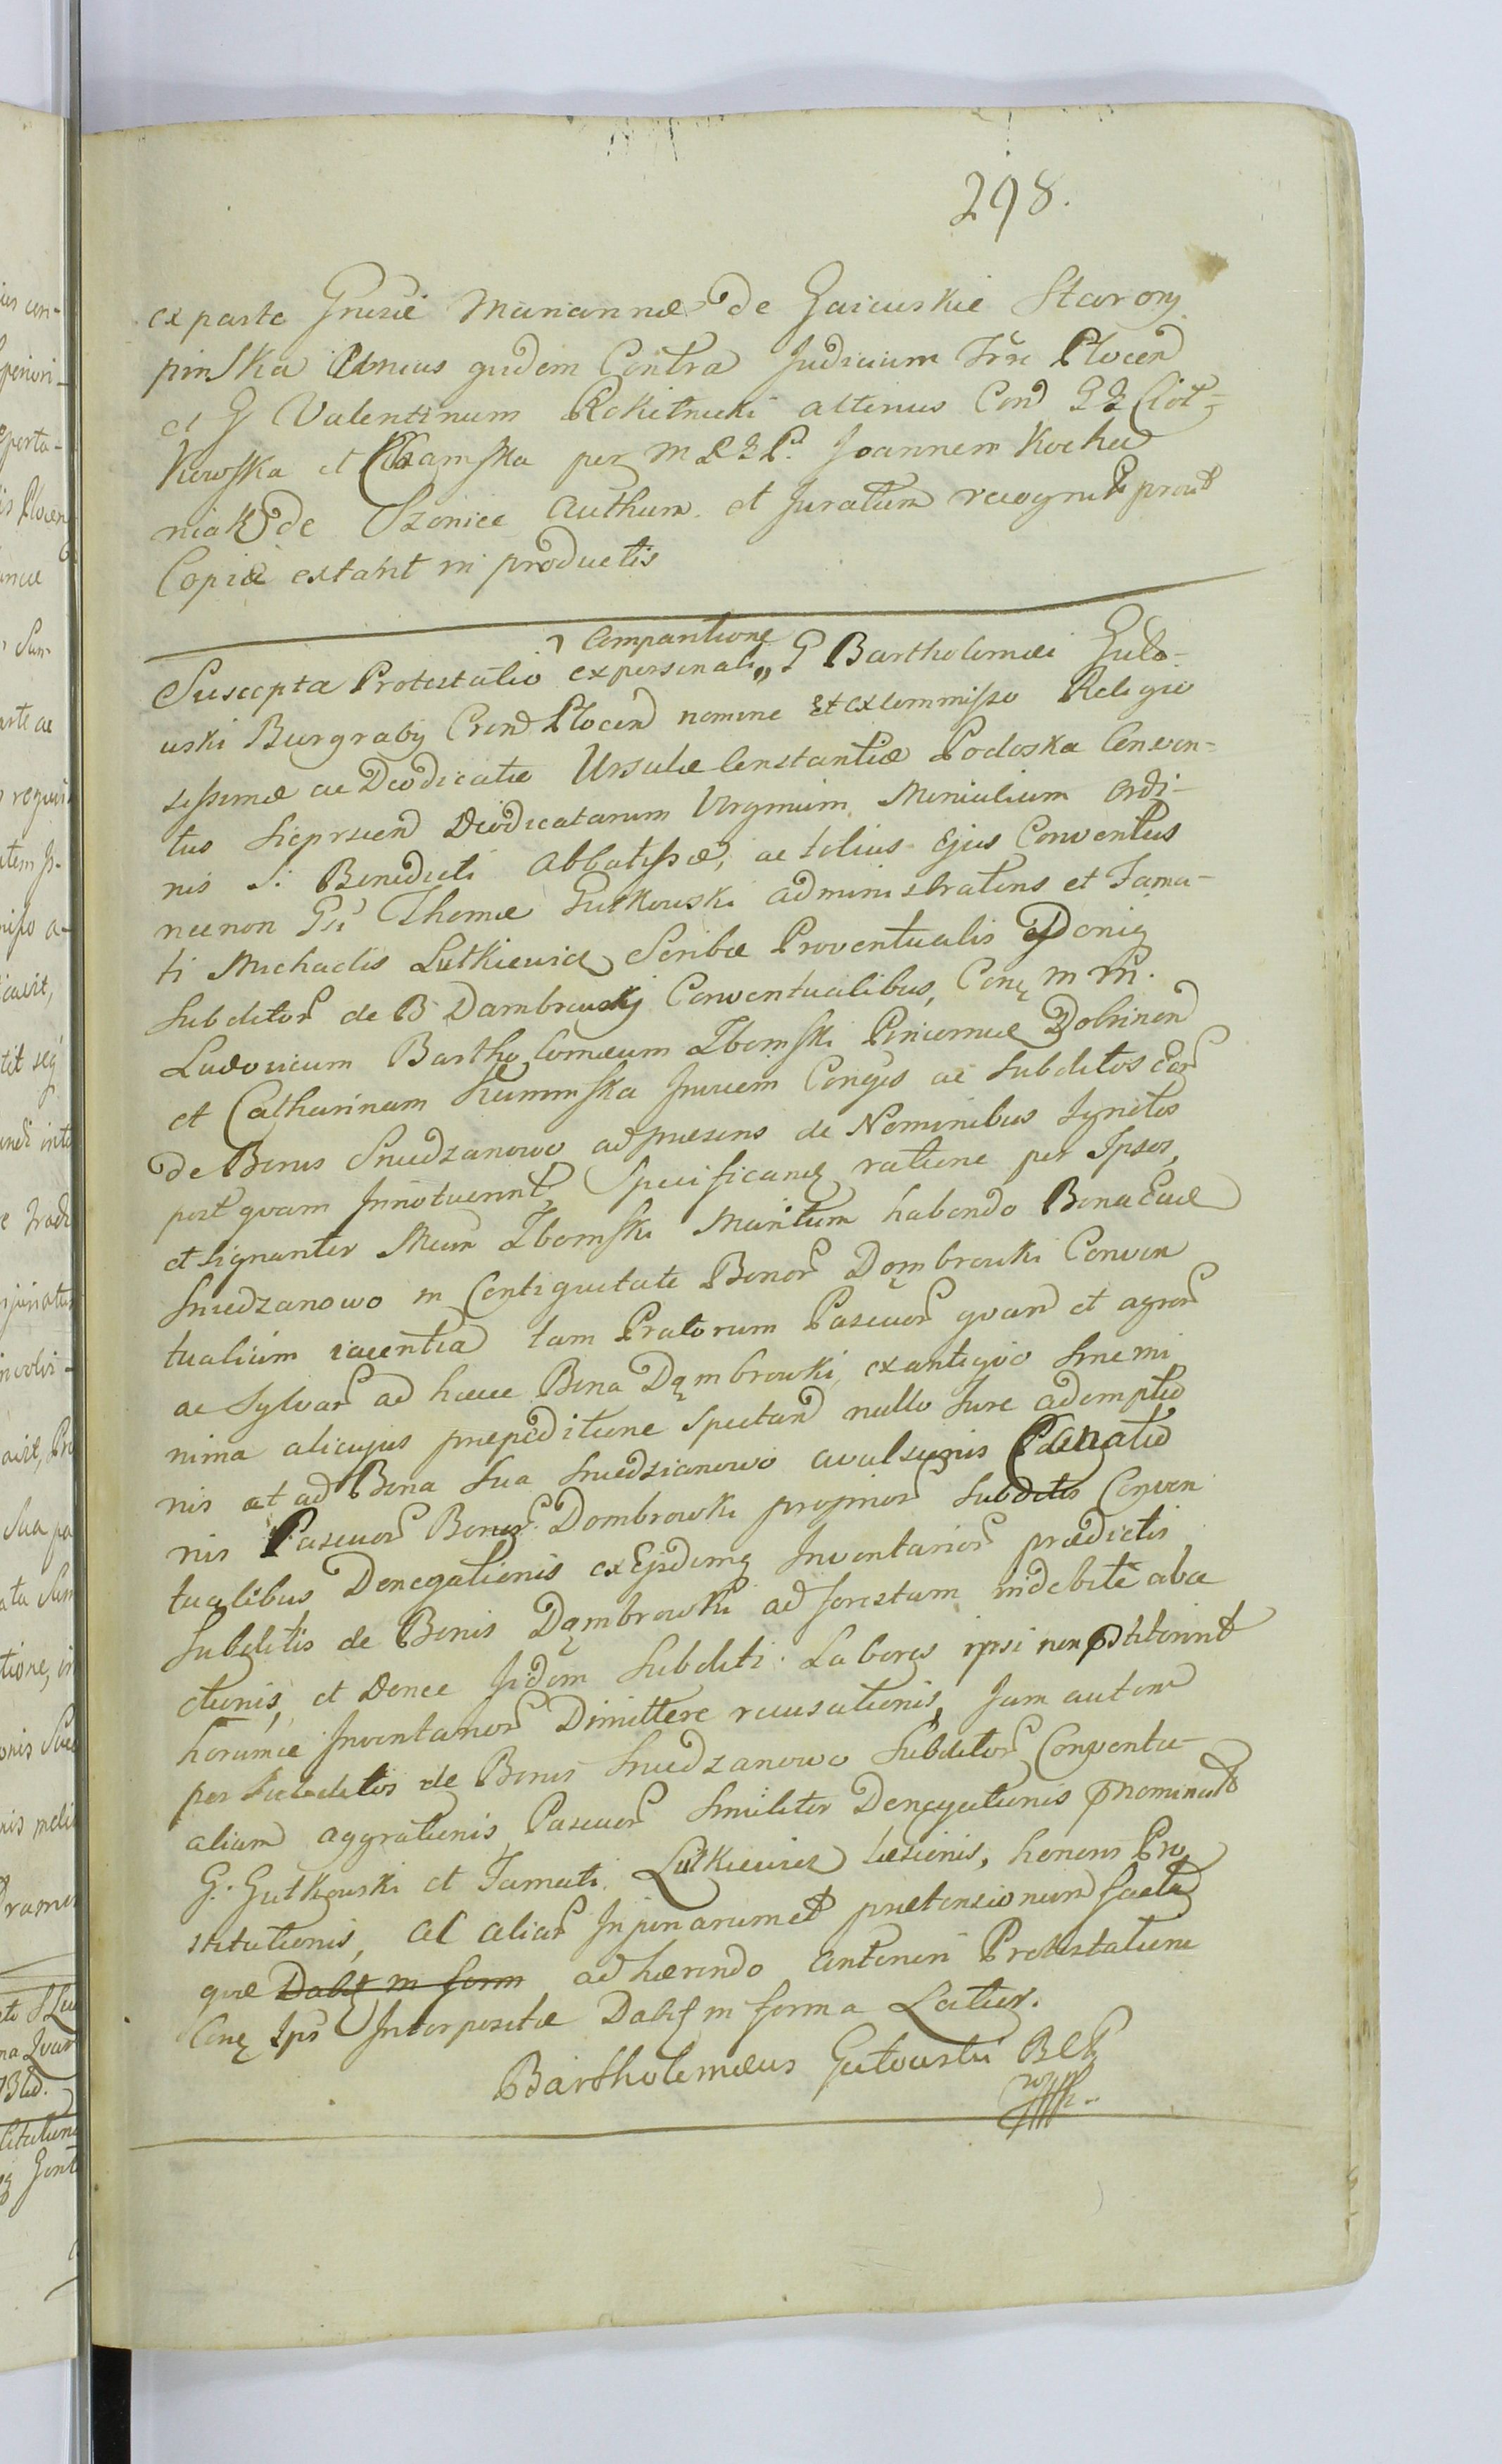 298.
ex parte Grusii Mariannæ de Gaiewskie Starory
pinska Unius quidem Contra Judicium Trre Plocen
et G Valentinum Rokitnicki alterius Con GG Ciot-
kowska et Chamska per M R G P. Joannem Kocha
niak de Szonice Authum. et Juratum recognit prout
Copiæ extant in productis
Suscepta Protestatio ex personali comparitione G Bartholomæi Guto-
wski Burgraby Cren Plocen nomine et ex commisso Religio
sissimæ ac Deodicatæ Ursulæ Constantiæ Podoska Conven-
tus Sieprscen Deodicatarum Virginum Monialium Ordi-
nis S. Benedicti Abbatissæ, ac totius Ejus Conventus
necnon Gsi Thomæ Gutkowski administratoris et Fama-
ti Michaelis Lutkiewicz Scribæ Proventualis
Subditor de B Dambrowskj Conventualibus, Con M M.
Ludovicum Bartholomæum Zbomski Pincernæ Dobrinen
et Catharinam Kuminska Invicem Conges ac Subditos Eor
de Bonis Sniedzanowo ad præsens de Nominibus Ignotos
postquam Innotuerint Specificand ratione per Ipsos,
et signanter Mcum Zbomski Maritum habendo Bona Eadem
Sniedzanowo in Contiguitate Bonor Dąmbrowki Conven
tualium iacentia tam Pratorum Pascuor quam et agror
ac Sylvar ad hæcce Bona Dąmbrowki ex antiquo sine mi
nima alicujus præpeditione Spectan nullo Jure ademptio
nis at ad Bona Sua Sniedzianowo avulsionis
nis Pascuor Bonor Dombrowki proprior Subditis Conven
tualibus Denegationis ex Ejsdemq Inventarior prædictis
Subditis de Bonis Dąmbrowki ad forestam indebite aba
ctionis, et Donec Jidem Subditi Labores ipsi non pstiterint
horumce Inventarior Dimittere recusationis, Jam autem
per Subditos de Bonis Sniedzanowo Subditor Conventu-
alium aggrationis Pascuor Similiter Denegationis pnominat
G. Gutkowski et Famati Lutkiewicz læsionis, honoris Pro
stitutionis, al aliar Injuriarumet prætensionum facta
quæ Dabit in form adhærendo anteriori Protestationi
Con Ips Interpositæ Dabit in forma Latior.
Bartholomæus Gutowski BCP